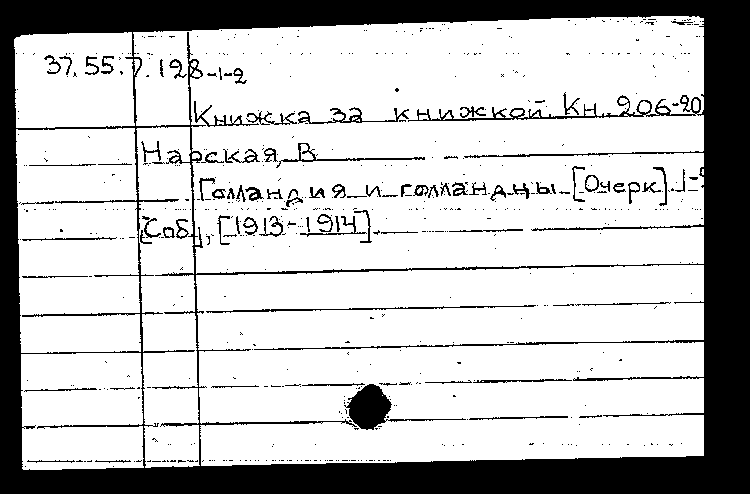 37.55.7.128-1-2
Книжка за книжкой. Кн. 206-20
Нарская, В.
Голландия и голландцы. [Очерк] 1-
[Спб], [1913-1914].